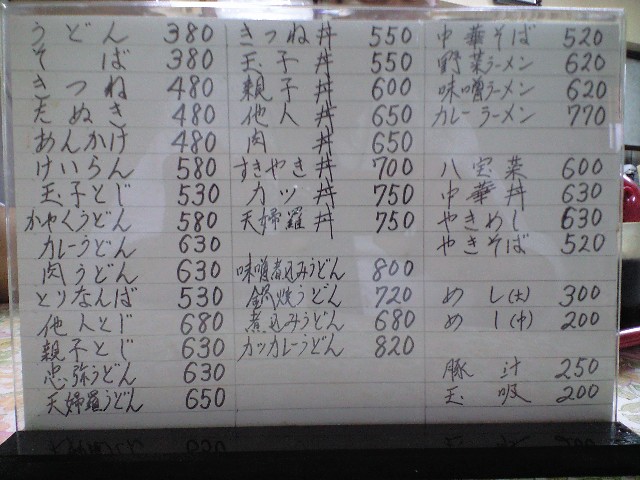 うどん 380
そば 380
きつね 480
たぬき 480
あんかけ 480
けいらん 580
玉子とじ 530
かやくうどん 580
カレーうどん 630
肉うどん 630
とりなんば 530
他人とじ 680
親子とじ 630
忠弥うどん 630
天婦羅うどん 650
きつね丼 550
玉子丼 550
親子丼 600
他人丼 650
肉丼 650
すきやき丼 700
カツ丼 750
天婦羅丼 750
味噌煮込みうどん 800
鍋焼うどん 720
煮込みうどん 680
カツカレーうどん 820
中華そば 520
野菜ラーメン 620
味噌ラーメン 620
カレーラーメン 770
八宝菜 600
中華丼 630
やきめし 630
やきそば 520
めし(大) 300
めし(中) 200
豚汁 250
玉吸 200